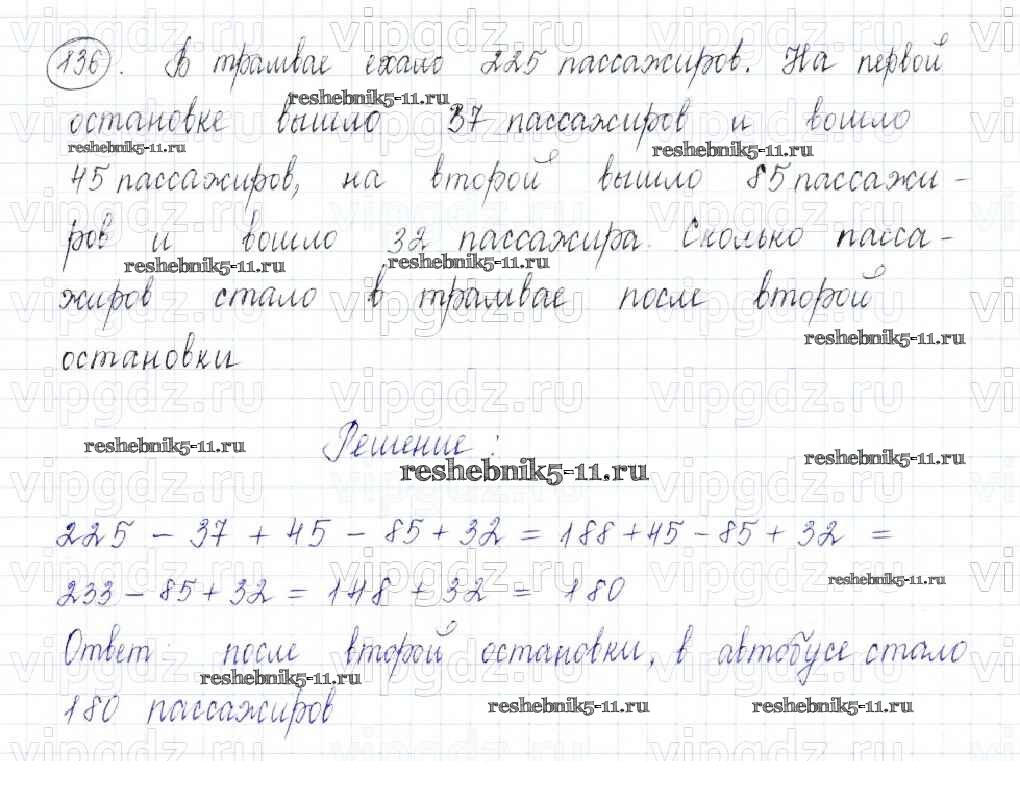 136. В трамвае ехало 225 пассажиров. На первой
остановке вышло 37 пассажиров и вошло
45 пассажиров, на второй вышло 85 пассажи-
ров и вошло 32 пассажира. Сколько пасса-
жиров стало в трамвае после второй
остановки
Решение:
225 - 37 + 45 - 85 + 32 = 188 + 45 - 85 + 32 =
233 - 85 + 32 = 148 + 32 = 180
Ответ: после второй остановки, в автобусе стало
180 пассажиров
reshebnik5-11.ru
vipgdz.ru